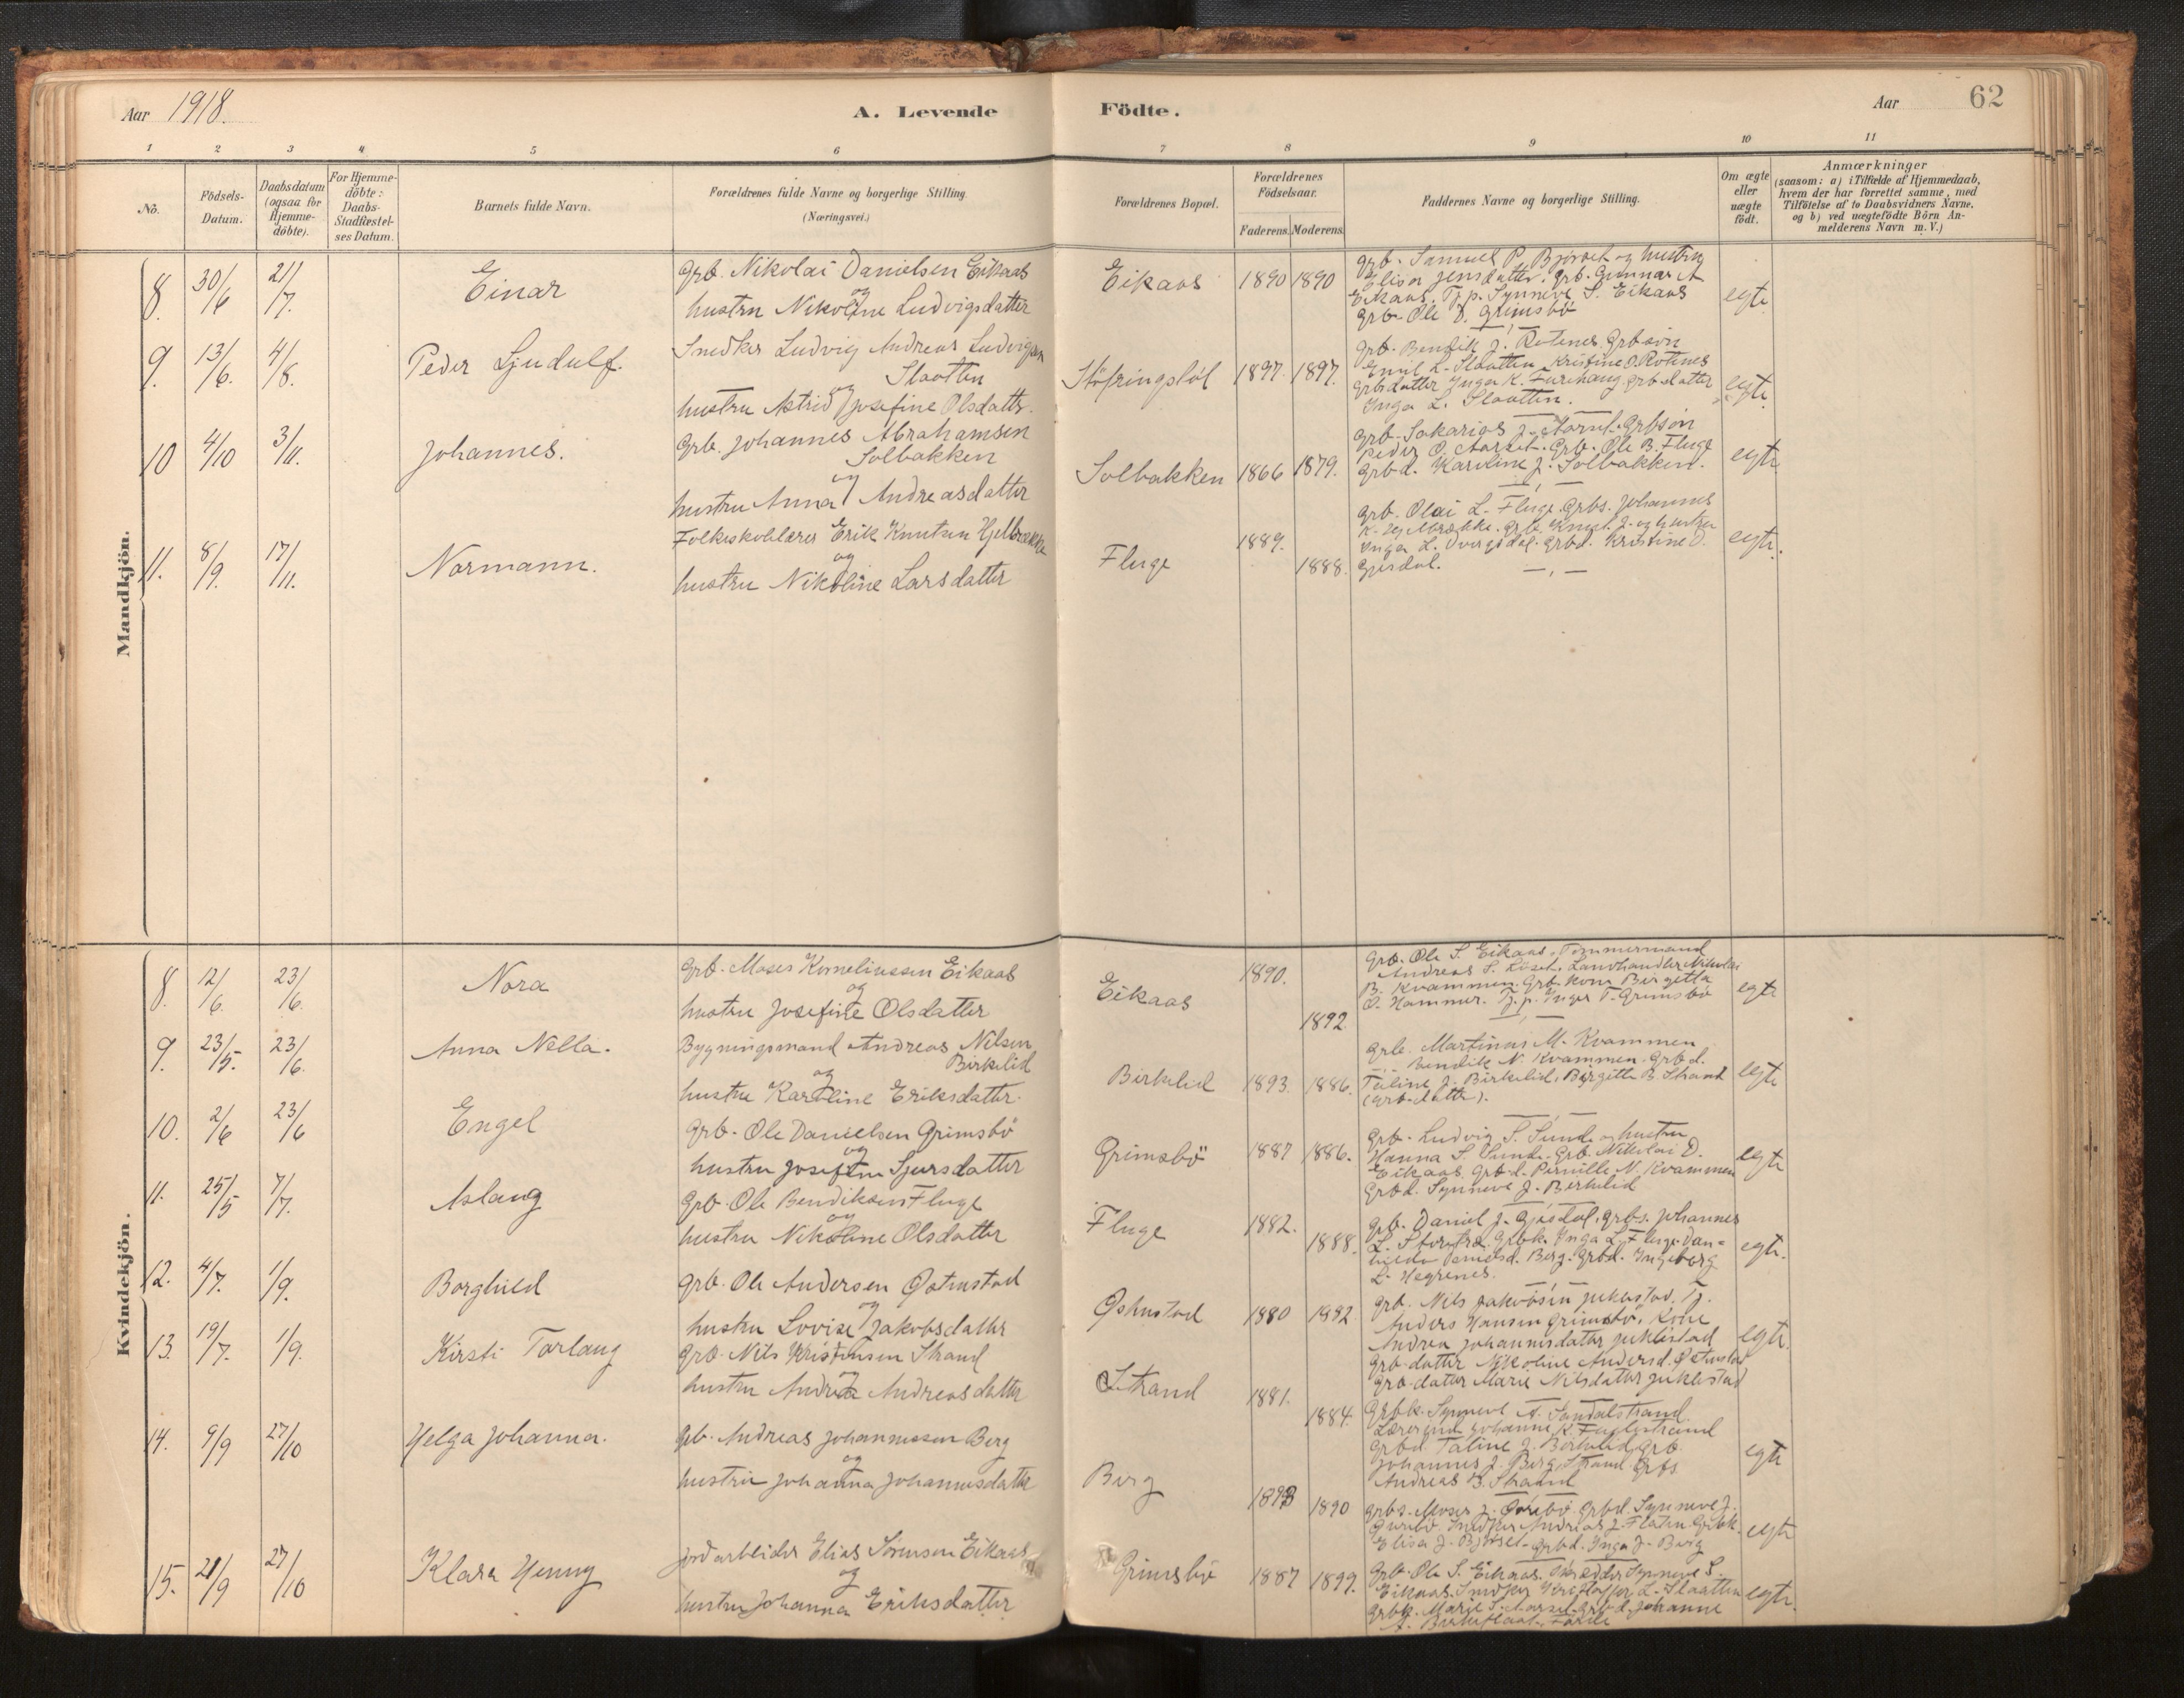 Aar 1918. A. Levende Födte. Aar 62
1 2 3 4 5 6 7 8 9 10 11
No. Födsels-Datum. Daabsdatum (ogsaa for Hjemme-döbte). For Hjemme-döbte: Daabs-Stadfæstel-ses Datum. Barnets fulde Navn. Forældrenes fulde Navne og borgerlige Stilling (Næringsvei.) Forældrenes Bopæl. Forældrenes Födselsaar. Faderens. Moderens. Faddernes Navne og borgerlige Stilling. Om ægte eller uægte födt. Anmærkninger (saasom: a) i Tilfælde af Hjemmedaab, hvem der har forrettet samme, med Tilföielse af to Daabsvidners Navne, og b) ved uægtefödte Börn An-melderens Navn m. V.)
Mandkjön.
8. 30/6 21/7. Einar Grb. Nikolai Danielsen Eikaas
og
hustru Nikoline Ludvigsdatter
Eikaas 1890 1890
Grb. Samuel P. Bjørset og hustru
Elisa Jensdatter. Grb. Gunnar A
Eikaas. Tj.p. Synneve S. Eikaas
Grb. Ole D. Grimsbö
egte
9. 13/6. 4/8. Peder Ljudulf. Snedker Ludvig Andreas Ludvigsen
Slaatten
og
hustru Astrid Josefine Olsdattr.
Stöfringsköl 1897. 1897.
Grb. Bendik J. Rotenes. Grbsön
Emil L. Slaatten Kristine J. Rotenes
Grbsdatter Inga K. Furehaug, Grb.datter
Inga L. Slaatten.
egte.
10 4/10 3/11. Johannes. Grb. Johannes Abrahamsen
Solbakken
og
hustru Anna Andreasdatter
Solbakken 1866 1879.
Grb. Sakarias J. Aarset. Grbsön
Peder O. Aarset. Grb. Ole B. Fluge
Grbd. Karoline J. Solbakken.
egte.
11. 8/9. 17/11. Normann. Folkeskolelærer Erik Knutsen Hjelbrække
og
hustru Nikoline Larsdatter
Fluge 1889. 1888.
Grb. Olai L. Fluge. Grbs. Johannes
Inga L. Kristine O.
Gjesdal.
egte.
Kvindekjön.
8. 12/6. 23/6. Nora Grb. Moses Korneliussen Eikaas
og
hustru Josefine Olsdatter
Eikaas 1890. 1892
Grb. Ole S. Eikaas, Tømmermand
Andreas S. Löset, Landhandler Nikolai
B. Kvammen. Grb. kone Birgitta
O. Hammer. Tj.p. Inger T. Grimsbö
egte
9. 23/5. 23/6. Anna Nella. Bygningsmand Andreas Nilsen
Birkelid
og
hustru Karoline Eriksdatter.
Birkelid 1893. 1886.
Grb. Martinus M. Kvammen
Bendik N. Kvammen. Grbd.
Taline J. Birkelid, Birgitte B. Strand
(Grb.datter).
egte
10. 2/6 23/6 Engel Grb. Ole Danielsen Grimsbö
og
hustru Josefine Sjursdatter
Grimsbö 1887 1886.
Grb. Ludvig S. Sunde og hustru
Hanna S. Sunde. Grb. Nikolai D.
Eikaas. Grbd. Pernille N. Kvammen
Grbd. Synneve J. Birkelid
egte
11. 25/5 7/7. Aslaug Grb. Ole Bendiksen Fluge
og
hustru Nikoline Olsdatter
Fluge 1882. 1888.
Grb. Daniel J. Gjesdal, Grbs. Johannes
Grbk. Inga L. Fluge. Dan-
Berg. Grbd. Ingeborg
L. Hegrenes.
egte.
12. 4/7. 1/9. Borghild Grb. Ole Andersen Østenstad
og
hustru Lovise Jakobsdatter
Østenstad 1880 1892
Grb. Nils Jakobsen Juklestad. Tj.
Anders Hansen Grimsbö, Kone
Andrea Johannesdatter Juklestad
Grb.datter Nikoline Andersd. Østenstad
Grb.datter Marie Nilsdatter Juklestad
egte.
13. 19/7. 1/9. Kirsti Torlaug Grb. Nils Kristensen Strand
og
hustru Andrea Andreasdatter
Strand 1881. 1884.
Grbk. Synneve N. Sandalstrand.
Lærerinde Johanne K.
Grbd. Taline J. Birkelid, Grb.
Johannes J. Berg, Strand Grbs
Andreas B. Strand
egte
14. 9/9 27/10 Helga Johanna. Grb. Andreas Johannessen Berg
og
hustru Johanna Johannesdatter
Berg 1893 1890
Grbs. Moses J. Grbd. Synneve J.
Snedker Andreas J. Flaten. Grbk.
Elisa J. Bjørset. Grbd. Inga J. Berg
egte
15. 21/9 27/10 Klara Henny Jordarbeider Elias Sörensen Eikaas
og
hustru Johanna Eriksdatter
Grimsbö 1887 1899.
Grb. Ole S. Eikaas. Synneve S.
Eikaas. Snedker Kristoffer L. Slaatten
Grbk. Marie S. Aarset. Grbd. Johanne
egte.